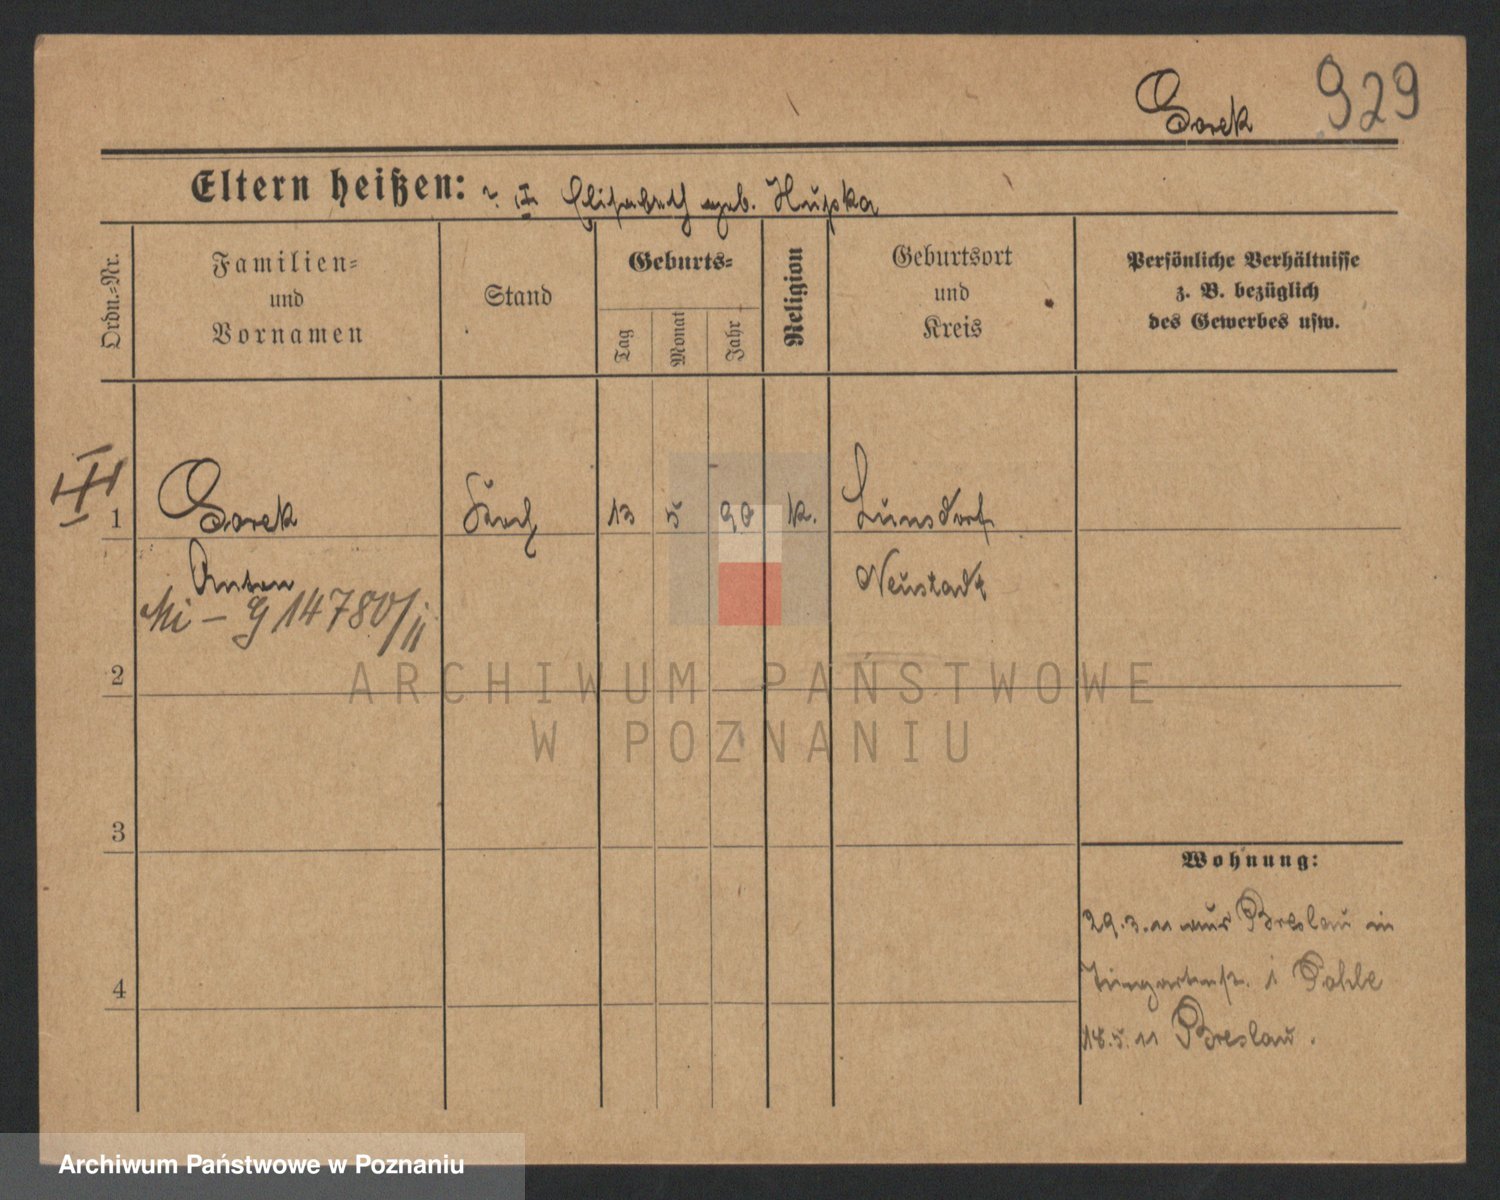 Gorek 929
Eltern heißen: ? u. Elisabeth geb. Hupka
Ordn.-Nr.
Familien-
und
Vornamen
Stand
Geburts-
Tag
Monat
Jahr
Religion
Geburtsort
und
Kreis
Persönliche Verhältnisse
z. B. bezüglich
des Gewerbes usw.
III
1 Gorek 13 5 90 k.
Anton Neustadt
Mi - G 14780/II
2
ARCHIWUM PAŃSTWOWE
W POZNANIU
3
Wohnung:
29.3.11 aus Breslau in
Tiergartenstr. 1 Pohle
4
18.5.11 Breslau.
Archiwum Państwowe w Poznaniu